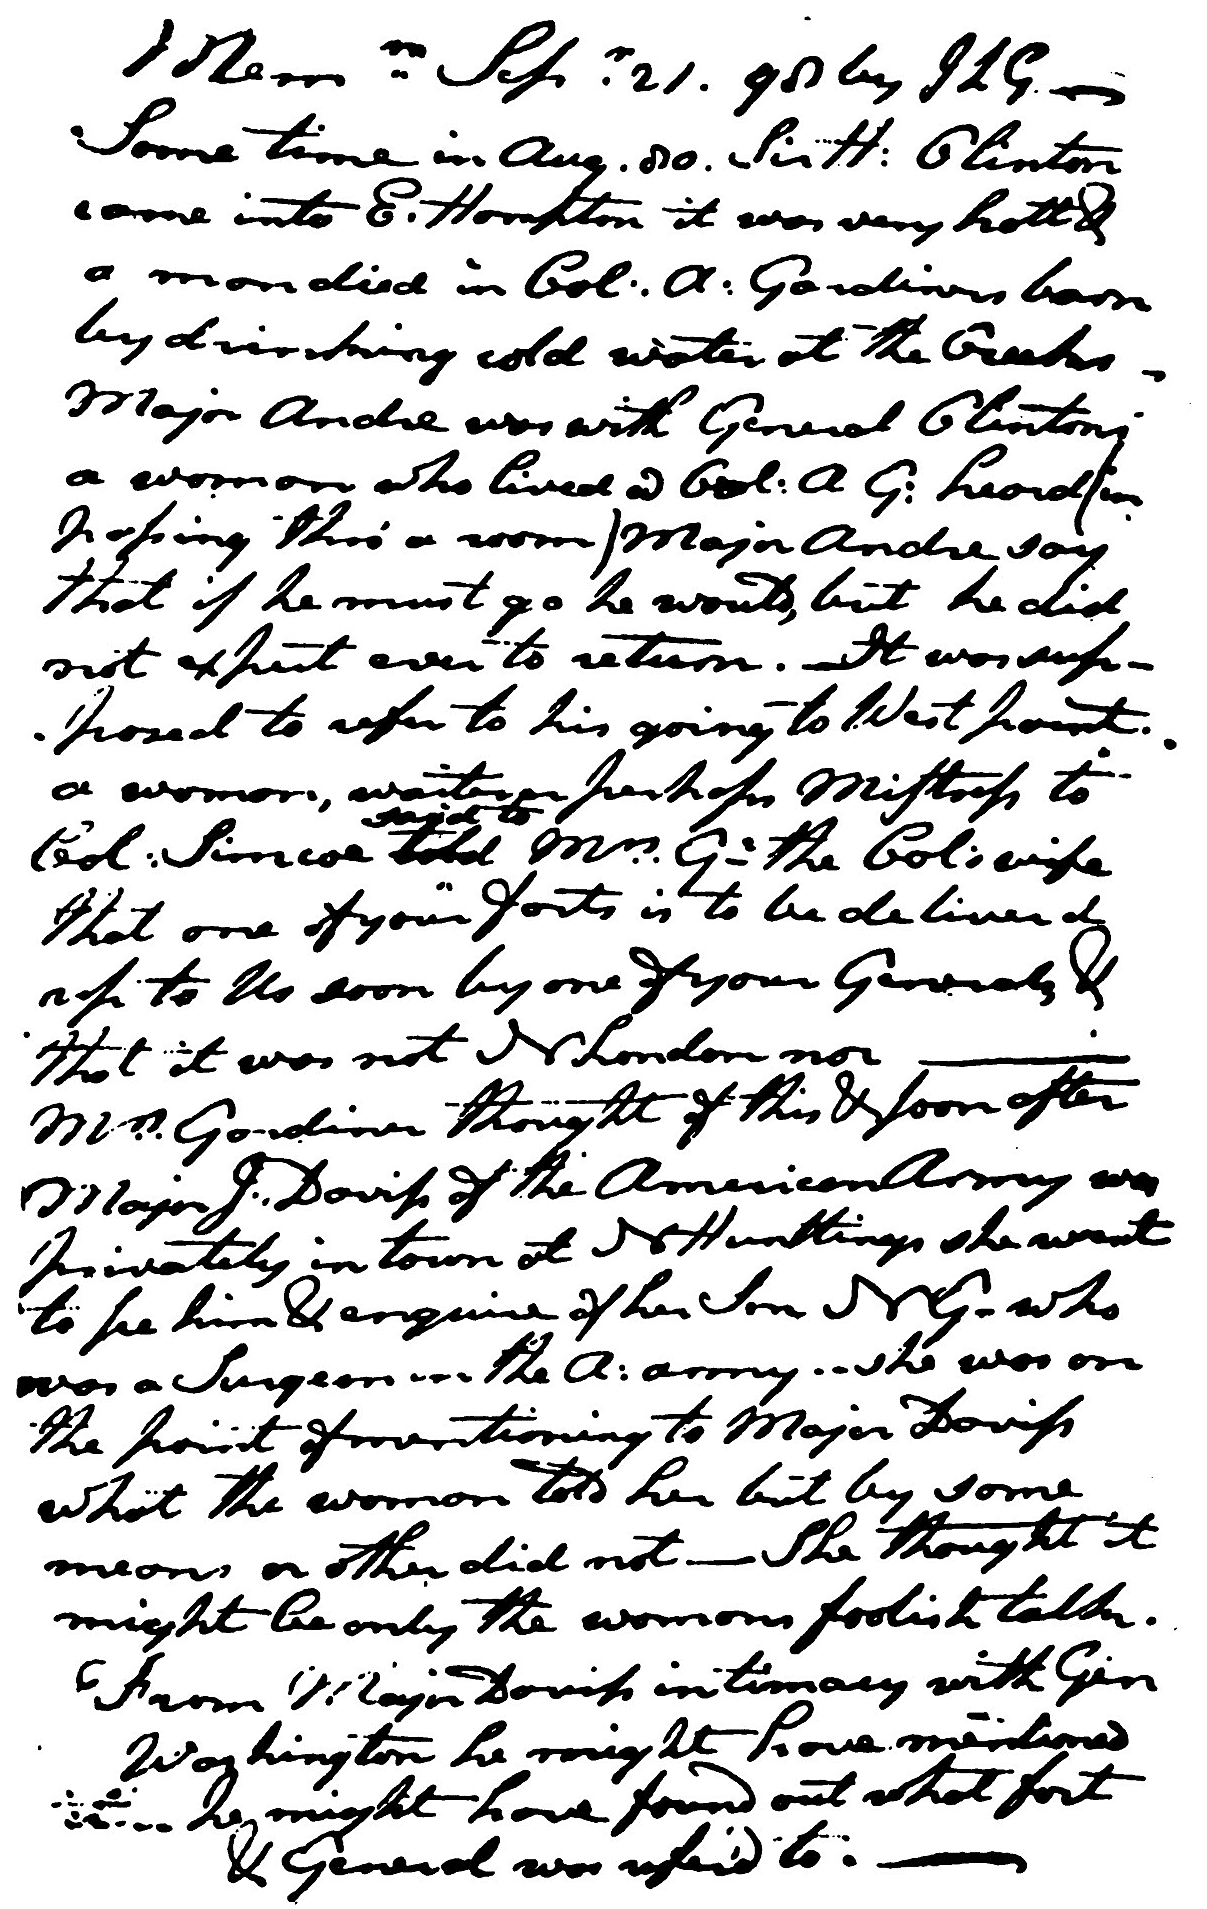 Mem.m Sep.r 21. 98 by J L G. —
Some time in Aug. 80. Sir H: Clinton
came into E. Hampton it was very hott &
a man died in Col:. A: Gardiners barn
by drinking cold water at the Creeks -
Major Andre was with General Clinton;
a woman who lived @ Col: A G: heard (in
passing thro' a room) Major Andre say
that if he must go he would, but he did
not expect ever to return. — It was sup-
posed to refer to his going to West point.
a woman, waiter or perhaps Mistress to
said to
Col: Simcoe told Mrs. G: the Col:s wife
that one of your forts is to be deliverd
up to Us soon by one of your Generals, &
that it was not N London nor ———
Mrs. Gardiner thought of this & soon after
Major J. Daviss of the American Army was
privately in town at N Huntings she went
to see him & enquire of her Son N G - who
was a Surgeon in the A: army .. she was on
the point of mentioning to Major Daviss
what the woman told her but by some
means or other did not — She thought it
might be only the womans foolish talk.
From Major Daviss intimacy with Gen
Washington he might have mentioned
he might have found out what fort
& General was referd to. ——